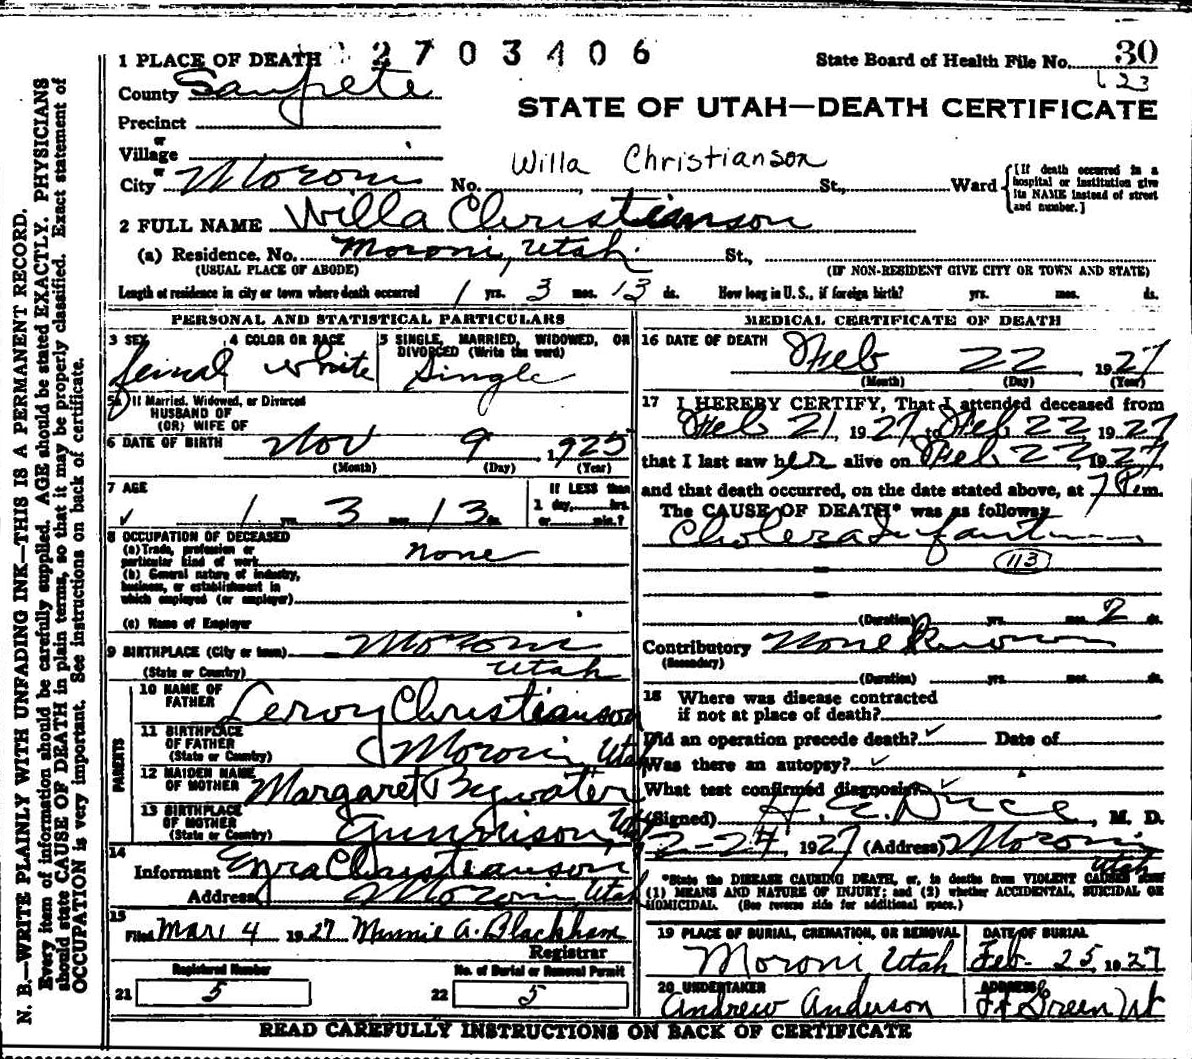 1 PLACE OF DEATH 2703406 State Board of Health File No. 30
County Sanpete 123
STATE OF UTAH—DEATH CERTIFICATE
Precinct
or
Village
or
City Moroni No. Willa Christianson St., Ward [If death occurred in a hospital or institution give its NAME instead of street and number.]
2 FULL NAME Willa Christianson
(a) Residence. No. Moroni, Utah. St.,
(USUAL PLACE OF ABODE) (IF NON-RESIDENT GIVE CITY OR TOWN AND STATE)
Length of residence in city or town where death occurred 1 yrs. 3 mos. 13 ds. How long in U. S., if foreign birth? yrs. mos. ds.
PERSONAL AND STATISTICAL PARTICULARS
3 SEX 4 COLOR OR RACE 5 SINGLE, MARRIED, WIDOWED, OR
DIVORCED (Write the word)
femal white Single
5a If Married, Widowed, or Divorced
HUSBAND OF
(OR) WIFE OF
6 DATE OF BIRTH Nov 9 1925
(Month) (Day) (Year)
7 AGE IF LESS than
1 yrs. 3 mos. 13 ds. 1 day, hrs.
or min.?
8 OCCUPATION OF DECEASED
(a) Trade, profession or
particular kind of work none
(b) General nature of industry,
business, or establishment in
which employed (or employer)
(c) Name of Employer
9 BIRTHPLACE (City or town) Moroni
(State or Country) Utah
PARENTS
10 NAME OF
FATHER Leroy Christianson
11 BIRTHPLACE
OF FATHER
(State or Country) Moroni, Utah
12 MAIDEN NAME
OF MOTHER Margaret Bywater
13 BIRTHPLACE
OF MOTHER
(State or Country) Gunnison, Ut
14
Informant Ezra Christianson
Address Moroni, Utah
15
Filed Mar 4 1927 Minnie A. Blackham
Registrar
Registered Number No. of Burial or Removal Permit
21 5 22 5
MEDICAL CERTIFICATE OF DEATH
16 DATE OF DEATH Feb 22 1927
(Month) (Day) (Year)
17 I HEREBY CERTIFY, That I attended deceased from
Feb 21 1927 to Feb 22 1927
that I last saw her alive on Feb 22, 1927,
and that death occurred, on the date stated above, at 7 Pm.
The CAUSE OF DEATH* was as follows:
Cholera Infantum
113
(Duration) yrs. mos. 2 ds.
Contributory None Known
(Secondary)
(Duration) yrs. mos. ds.
18 Where was disease contracted
if not at place of death?
Did an operation precede death? ✓ Date of
Was there an autopsy? ✓
What test confirmed diagnosis? ✓
(Signed) M. D.
2-24, 1927 (Address) Moroni
Utah
*State the DISEASE CAUSING DEATH, or, in deaths from VIOLENT CAUSES, state
(1) MEANS AND NATURE OF INJURY; and (2) whether ACCIDENTAL, SUICIDAL OR
HOMICIDAL. (See reverse side for additional space.)
19 PLACE OF BURIAL, CREMATION, OR REMOVAL DATE OF BURIAL
Moroni, Utah Feb. 25, 1927
20 UNDERTAKER ADDRESS
Andrew Anderson Ft Green Ut
READ CAREFULLY INSTRUCTIONS ON BACK OF CERTIFICATE
N. B.—WRITE PLAINLY WITH UNFADING INK—THIS IS A PERMANENT RECORD.
Every item of information should be carefully supplied. AGE should be stated EXACTLY. PHYSICIANS
should state CAUSE OF DEATH in plain terms, so that it may be properly classified. Exact statement of
OCCUPATION is very important. See instructions on back of certificate.